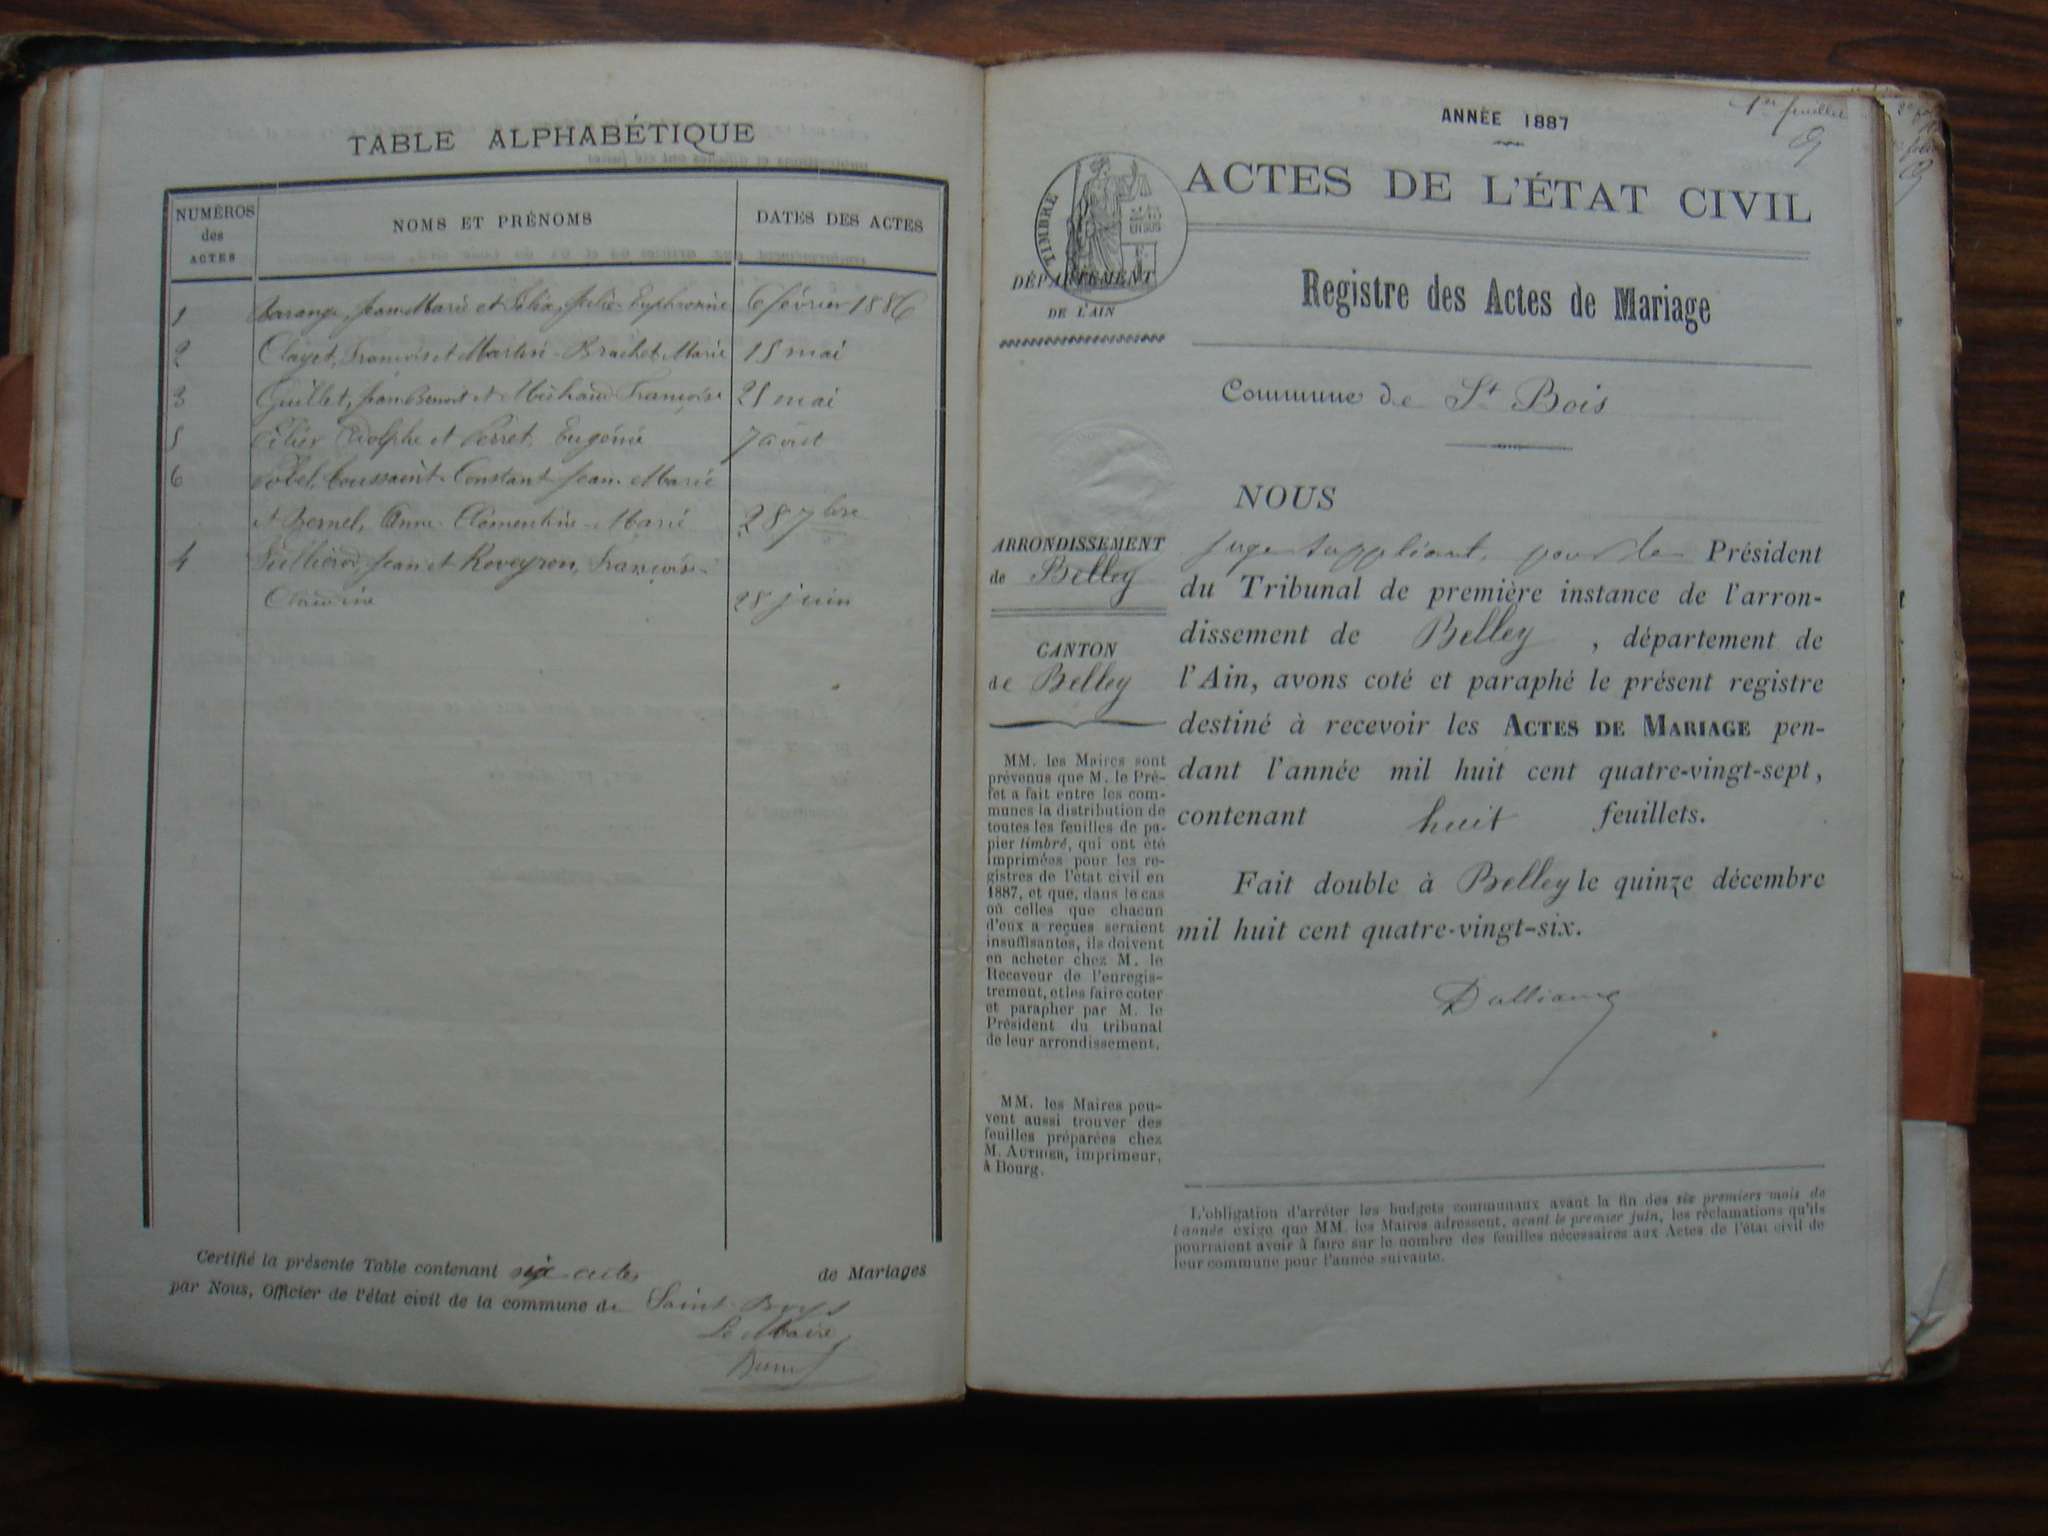 TABLE ALPHABÉTIQUE
NUMÉROS des ACTES
NOMS ET PRÉNOMS
DATES DES ACTES
1 Jean Marie et Félix, Julie Euphrosine 6 février 1886
2 Clayet, François et Martin-Brachet Marie 15 mai
3 Guillet, Jean Benoit et Michaud Françoise 21 mai
5 Félix Adolphe et Perret, Eugénie 7 août
6 Toussaint Constant Jean Marie
et Bernel, Anne Clémentine Marie 28 7bre
4 Jean et Roveyron, Françoise
28 juin
Certifié la présente Table contenant six actes de Mariages
par Nous, Officier de l'état civil de la commune de Saint-Boys
Le Maire,
1er feuillet
ANNÉE 1887
ACTES DE L'ÉTAT CIVIL
TIMBRE
DÉPARTEMENT
DE L'AIN
Registre des Actes de Mariage
Commune de St Bois
ARRONDISSEMENT
de Belley
CANTON
de Belley
MM. les Maires sont
prévenus que M. le Pré-
fet a fait entre les com-
munes la distribution de
toutes les feuilles de pa-
pier timbré, qui ont été
imprimées pour les re-
gistres de l'état civil en
1887, et que, dans le cas
où celles que chacun
d'eux a reçues seraient
insuffisantes, ils doivent
en acheter chez M. le
Receveur de l'enregis-
trement, et les faire coter
et parapher par M. le
Président du tribunal
de leur arrondissement.
MM. les Maires peu-
vent aussi trouver des
feuilles préparées chez
M. AUTHIER, imprimeur,
à Bourg.
NOUS
juge suppléant, pour le Président
du Tribunal de première instance de l'arron-
dissement de Belley, département de
l'Ain, avons coté et paraphé le présent registre
destiné à recevoir les ACTES DE MARIAGE pen-
dant l'année mil huit cent quatre-vingt-sept,
contenant huit feuillets.
Fait double à Belley le quinze décembre
mil huit cent quatre-vingt-six.
L'obligation d'arrêter les budgets communaux avant la fin des six premiers mois de
l'année exige que MM. les Maires adressent, avant le premier juin, les réclamations qu'ils
pourraient avoir à faire sur le nombre des feuilles nécessaires aux Actes de l'état civil de
leur commune pour l'année suivante.